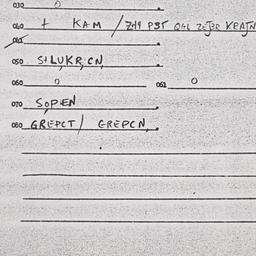 030 0
040 + KAM / ZH9 PST
045
050 SILUKR, CN,
060 0 062 0
070 SOPIEN
080 GREPCT / GREPCN,